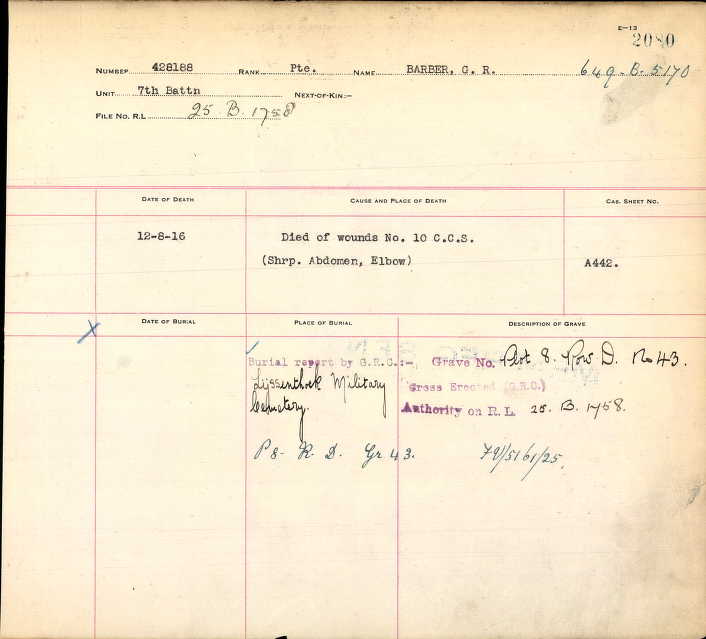 E-13
2080
NUMBER 428188 RANK Pte. NAME BARBER, C. R. 649-B-5170
UNIT 7th Battn NEXT-OF-KIN:-
FILE NO. R.L 25 B. 1758
DATE OF DEATH CAUSE AND PLACE OF DEATH CAS. SHEET NO.
12-8-16 Died of wounds No. 10 C.C.S.
(Shrp. Abdomen, Elbow) A442.
DATE OF BURIAL PLACE OF BURIAL DESCRIPTION OF GRAVE
Burial report by G.R.C.:- Grave No. Plot 8. Row D. No 43.
Lijssenthoek Military Cross Erected (G.R.C.)
Cemetery. Authority on R.L. 25. B. 1758.
P 8. R. D. Gr 43.